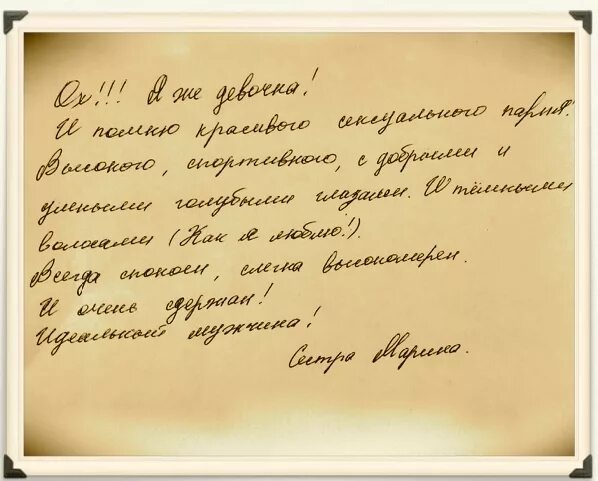 Ох!!! Я же девочка!
И помню красивого сексуального парня!
Высокого, спортивного, с добрыми и
умными голубыми глазами. И тёмными
волосами (Как я люблю!).
Всегда спокоен, слегка высокомерен.
И очень сдержан!
Идеальный мужчина!
Сестра Марина.